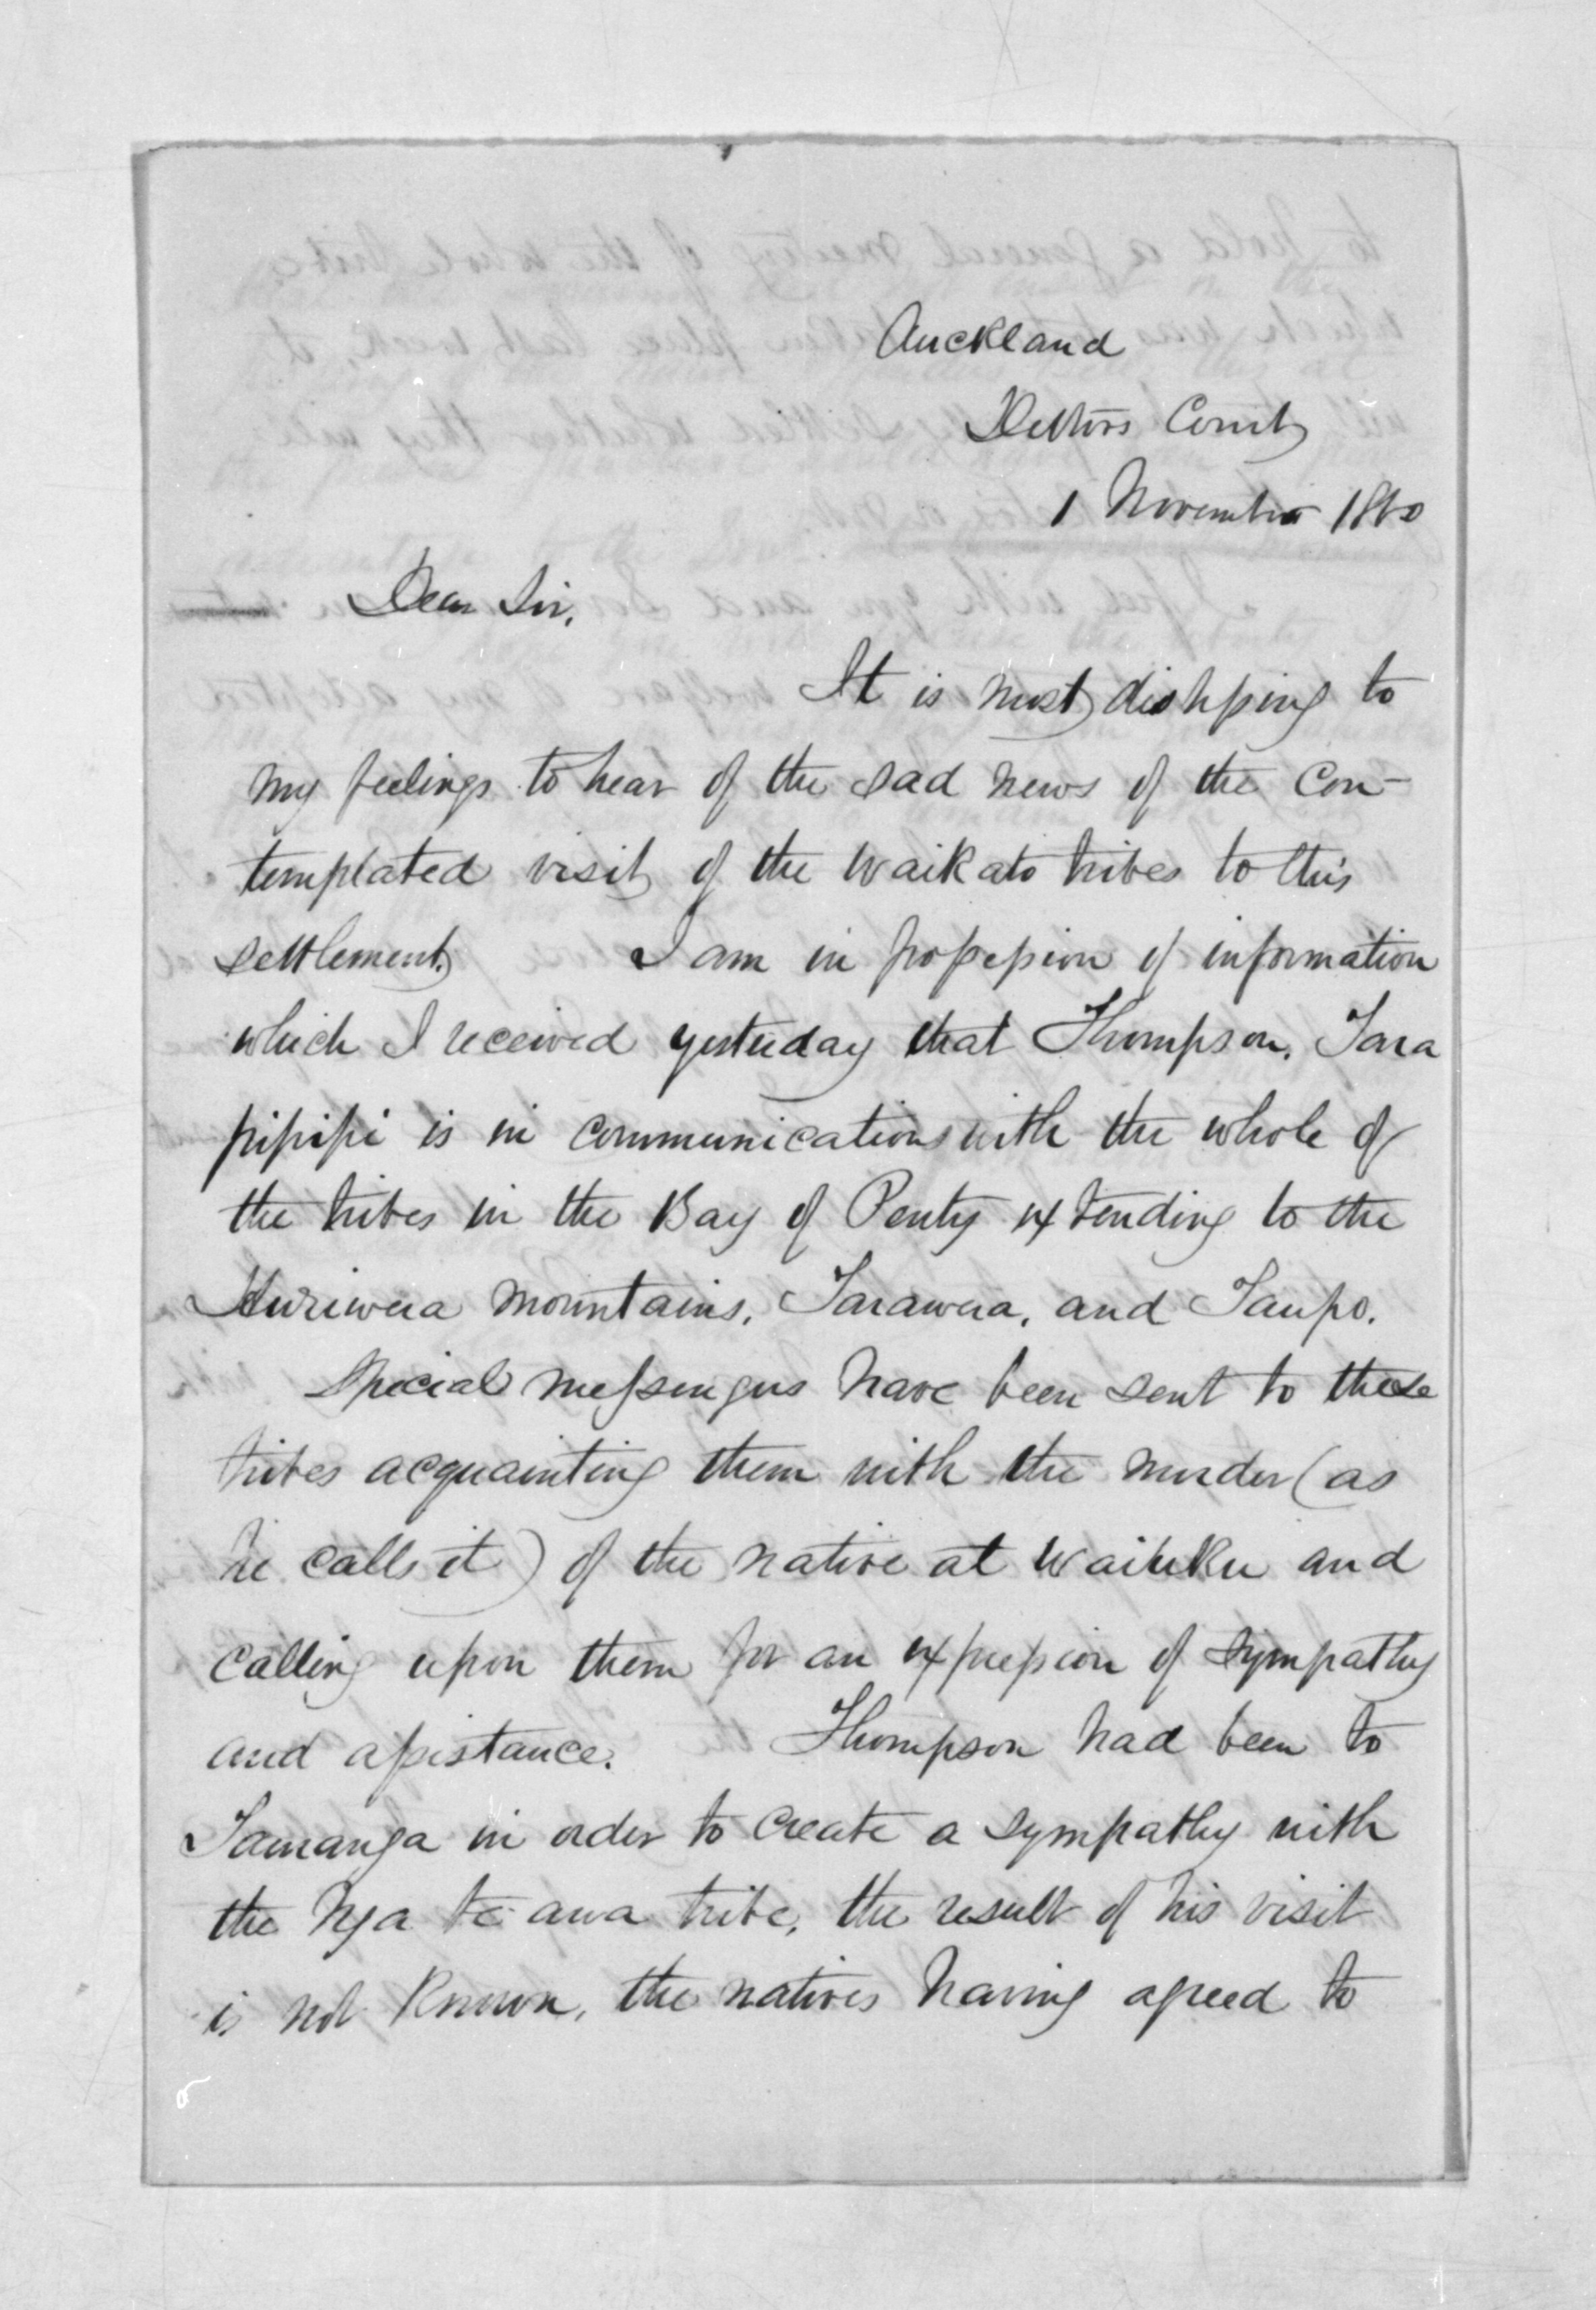 Auckland
Debtors Court
1 November 1860
Dear Sir,
It is most distressing to
my feelings to hear of the sad news of the con-
templated visit of the Waikato tribes to this
settlement. I am in possession of information
which I received yesterday that Thompson, Tara
pipipi is in communication with the whole of
the tribes in the Bay of Penty extending to the
Huriwera mountains, Tarawera, and Taupo.
Special messengers have been sent to these
tribes acquainting them with the murder (as
he calls it) of the native at Waiuku and
calling upon them for an expression of sympathy
and assistance. Thompson had been to
Tauranga in order to create a sympathy with
the Nga te awa tribe, the result of his visit
is not known, the natives having agreed to